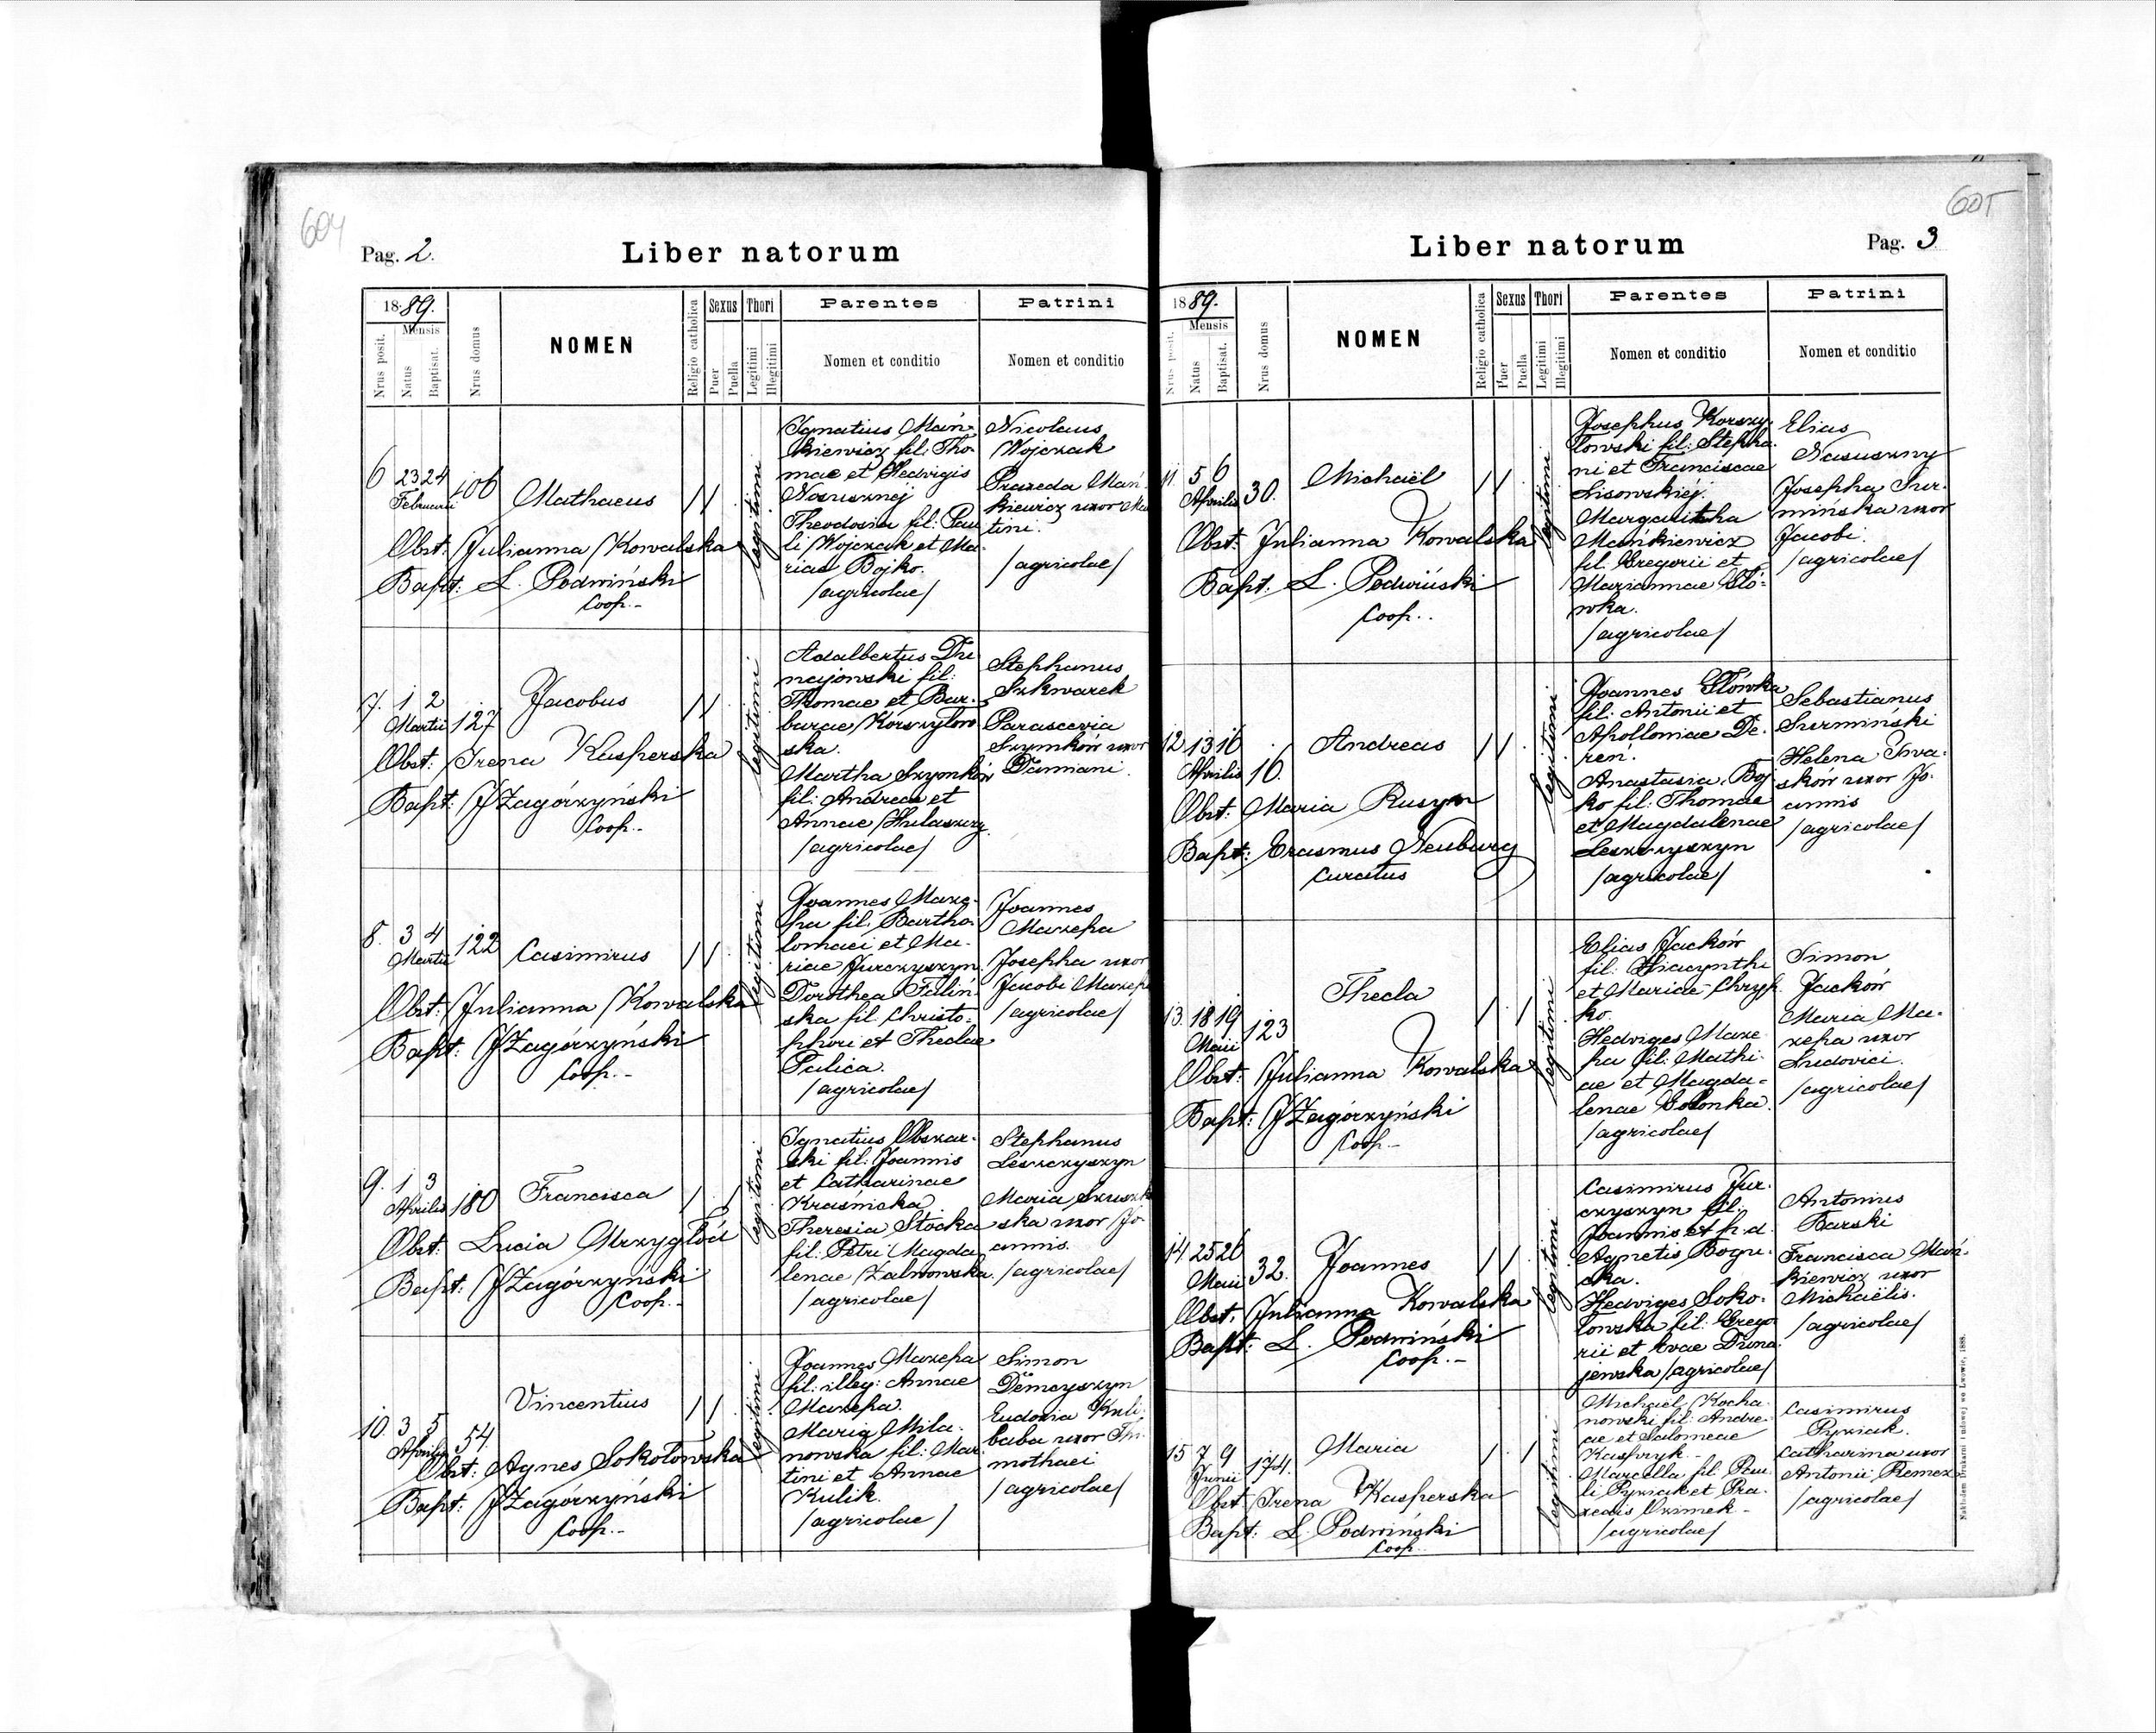 604
Pag. 2.
Liber natorum
1889.
Nrus posit.
Mensis
Natus
Baptisat.
Nrus domus
NOMEN
Religio catholica
Sexus
Puer
Puella
Thori
Legitimi
Illegitimi
Parentes
Nomen et conditio
Patrini
Nomen et conditio
6 23 24 Februarii 106 Mathaeus // legitimi
Obst: Julianna Kowalska
Bapt: L. Podwiński
Coop.-
Ignatius Mań-
kiewicz fil: Tho-
mae et Hedvigis
Theodosia fil: Pau
li Wojczak et Ma-
riae Bojko.
/agricolae/
Nicolaus
Wojczak
Praxeda Mań
kiewicz uxor Ma
tini.
/agricolae/
7. 1 2 Martii 127 Jacobus // legitimi
Obst: Irena Kasperska
Bapt: J Zagórzyński
Coop.-
Adalbertus Du
najowski fil:
Thomae et Bar-
barae Korszyłow
ska.
Martha Szymków
fil: Andreae et
Annae
/agricolae/
Stephanus
Szkwarek
Parascevia
Szymków uxor
Damiani.
8. 3 4 Martii 122 Casimirus // legitimi
Obst: Julianna Kowalska
Bapt: J Zagórzyński
Coop.-
Joannes Maze-
pa fil: Bartho-
lomaei et Ma-
riae Jurczyszyn.
Dorothea Faliń-
ska fil: Christo-
phori et Theclae
Palica.
/agricolae/
Joannes
Mazepa
Josepha uxor
Jacobi Mazepa
/agricolae/
9. 1 3 Aprilis 180 Francisca / / legitimi
Obst: Lucia Mrzygłód
Bapt: J Zagórzyński
Coop.-
Ignatius Obszar-
ski fil: Joannis
et Catharinae
Kraśnicka
Theresia Stocka
fil: Petri Magda
lenae Zalnowska.
/agricolae/
Stephanus
Leszczyszyn
Maria
ska uxor Jo-
annis.
/agricolae/
10. 3 5 Aprilis 54. Vincentius // legitimi
Obst: Agnes Sokołowska
Bapt: J Zagórzyński
Coop.-
Joannes Mazepa
fil: illeg: Annae
Mazepa.
Maria Mila-
nowska fil: Mar
tini et Annae
Kulik.
/agricolae/
Simon
Demczyszyn
Eudoxia Kuli-
baba uxor Thi-
mothaei
/agricolae/
605
Liber natorum
Pag. 3
1889.
Nrus posit.
Mensis
Natus
Baptisat.
Nrus domus
NOMEN
Religio catholica
Sexus
Puer
Puella
Thori
Legitimi
Illegitimi
Parentes
Nomen et conditio
Patrini
Nomen et conditio
11. 5 6 Aprilis 30. Michaël // legitimi
Obst: Julianna Kowalska
Bapt: L. Podwiński
Coop..
Josephus Korszy-
łowski fil: Stepha-
ni et Franciscae
Lisowskiéj.
Margaritha
Mańkiewicz
fil. Gregorii et
Mariannae Głó-
wka.
/agricolae/
Elias
Nasuszny
Josepha Sur-
mińska uxor
Jacobi.
/agricolae/
12. 13 16 Aprilis 16. Andreas // legitimi
Obst: Maria Rusyn
Bapt: Erasmus Neuburg
Curatus
Joannes Głowka
fil: Antonii et
Apolloniae De-
reń.
Anastasia Boj
ko fil: Thomae
et Magdalenae
Leszczyszyn
/agricolae/
Sebastianus
Surmiński
Helena Iwa-
sków uxor Jo-
annis
/agricolae/
13. 18 19 Maii 123 Thecla / / legitimi
Obst: Julianna Kowalska
Bapt: J Zagórzyński
Coop.-
Elias Jacków
fil: Hiacynthi
et Mariae Chryp-
ko.
Hedviges Maze
pa fil: Mathi-
ae et Magda-
lenae Gołonka.
/agricolae/
Simon
Jacków
Maria Ma-
zepa uxor
Ludovici.
/agricolae/
14. 25 26 Maii 32. Joannes // legitimi
Obst. Julianna Kowalska
Bapt: L. Podwiński
Coop.-
Casimirus Jur-
czyszyn fil:
Joannis et p. d.
Agnetis Bogu-
cka.
Hedviges Soko-
łowska fil: Grego
rii et Evae Duna
jewska /agricolae/
Antonius
Barski
Francisca Mań-
kiewicz uxor
Michaëlis.
/agricolae/
15 7 9 Junii 174. Maria / / legitimi
Obst: Irena Kasperska
Bapt: L. Podwiński
Coop.
Michaël Kocha
nowski fil: Andre-
ae et Salomeae
Kasprzyk -
Marcella fil: Pau
li Pyziak et Pra-
xedis Ozimek -
/agricolae/
Casimirus
Pyziak.
Catharina uxor
Antonii Remez
/agricolae/
Nakładem Drukarni Ludowej we Lwowie, 1888.